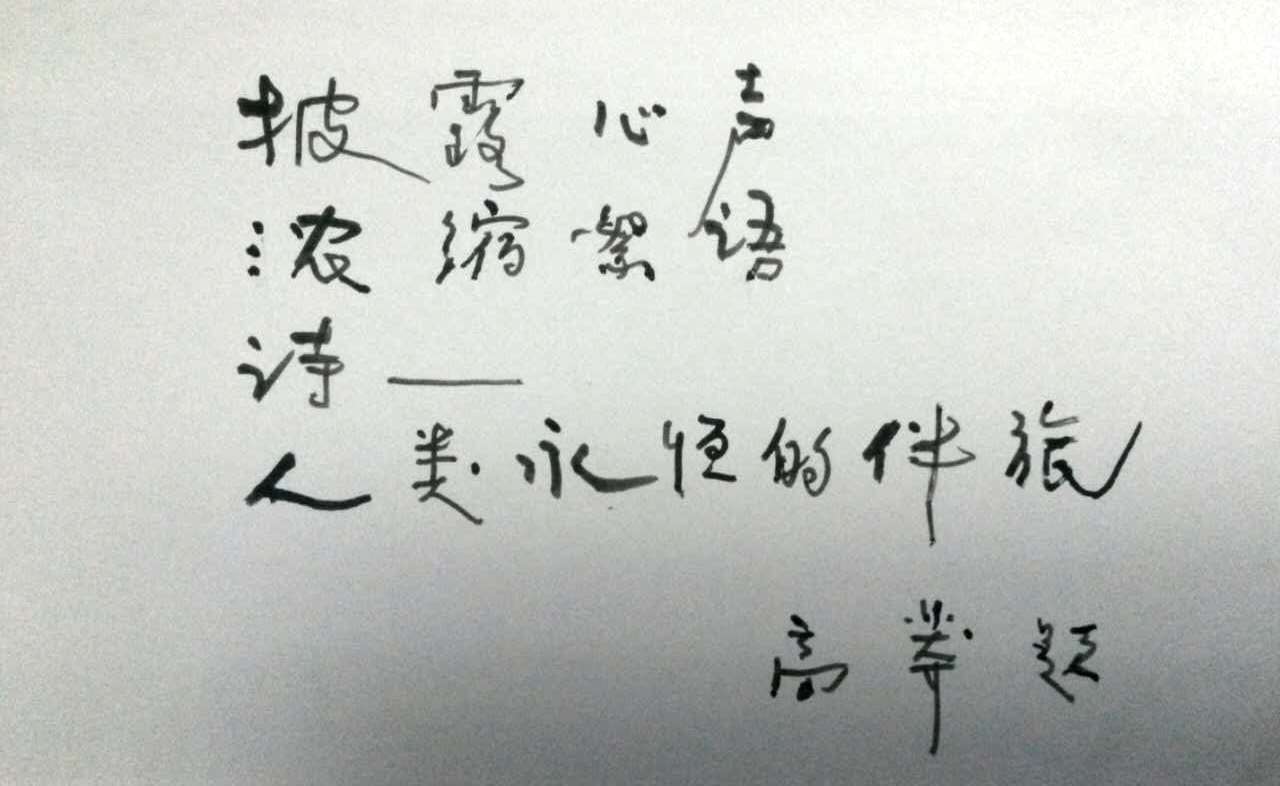 披露心声
浓缩絮语
诗——
人类永恒的伴旅
高举题